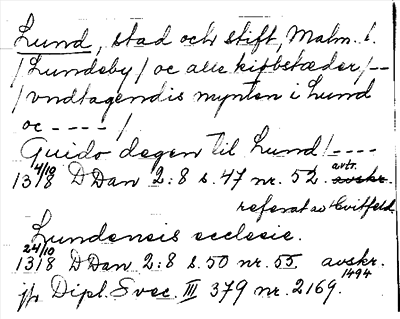 Lund, stad och stift, Malm. l.
/Lundeby/ oc alle kiøbstæder/--
/vndtagendis mynten i Lund
oc ---- /
Guido degen til Lund/----
4/10 avtr.
1318 D Dan 2:8 s. 47 nr. 52. avskr.
referat av Hvitfeld.
Lundensis ecclesie.
24/10
1318 D Dan 2:8 s. 50 nr. 55 avskr.
1494
jfr Dipl. Svec. III 379 nr. 2169.